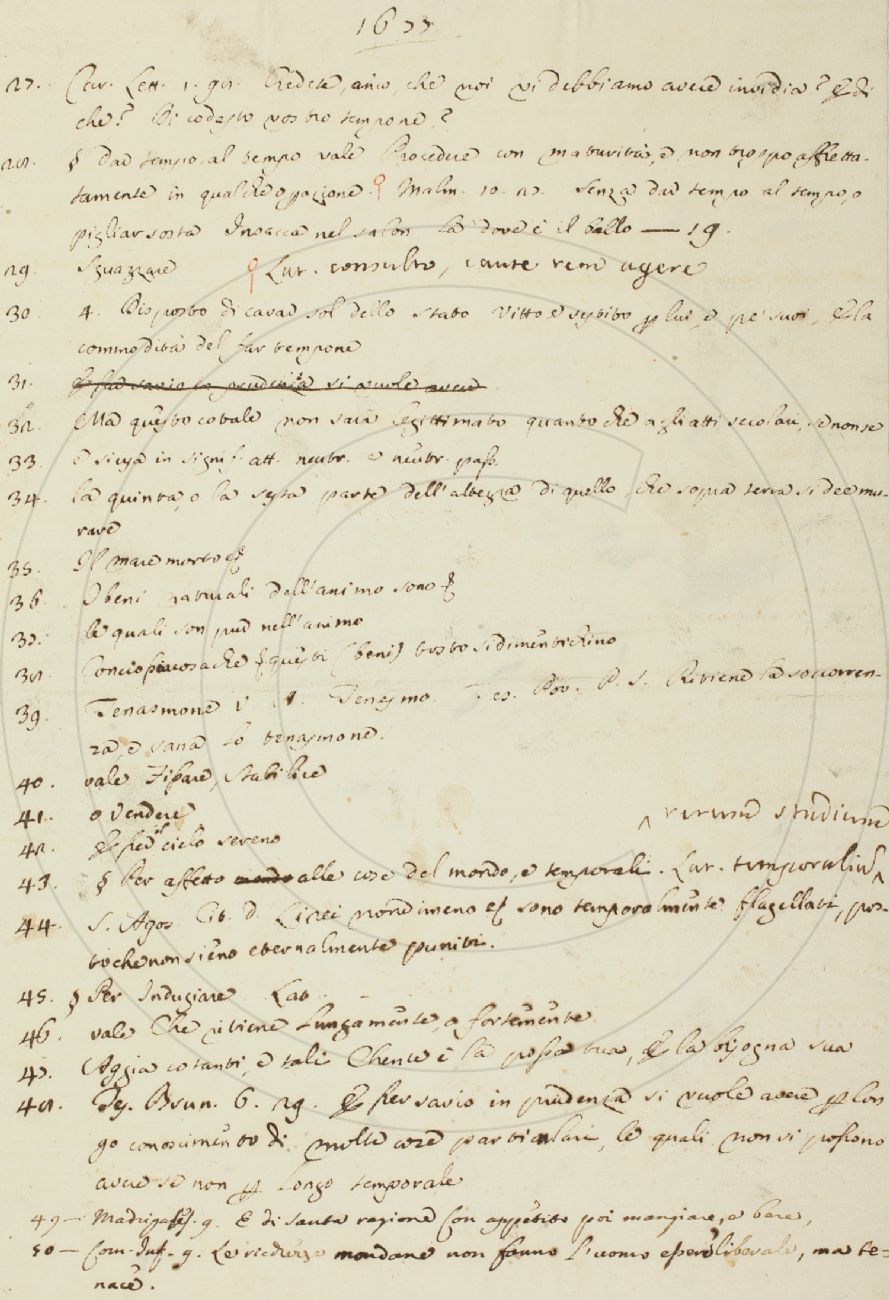 1677
27. Car. Lett. 1. 98. Credete, amico, che noi vi debbiamo avere invidia? e di
che? Di codesto vostro tempone?
28. § Dar tempo al tempo vale Procedere con maturità, e non troppo affretta-
tamente in qualche operazione. Malm. 10. 27. Senza dar tempo al tempo, o
pigliar sosta Insacca nel salon là dove è il ballo — 19.
29. Sguazzare Lat. consulto, caute rem agere
30. 4. Disposto di cavar sol dello Stato vitto e vestito per lui, e pe' suoi, e la
commodità del far tempone
31. e esser savio in prudenzia si vuole avere
32. Ma questo cotale non sarà legittimato quanto che agli atti secolari, se non se
33. e si usa in signif. att. neutr. e neutr. pass.
34. la quinta, o la sesta parte dell'altezza di quello, che sopra terra si dee mu-
rare
35. Il mare morto ec
36. I beni naturali dell'animo sono
37. le quali son pur nell'animo
38. Conciossiacosachè questi (beni) tosto si dimentichino
39. Tenasmone V. A. Tenesmo. Tes. Pov. P. S. Ritiene la soccorren-
za, e sana lo tenasmone.
40. vale Fissare, Stabilire
41. o vendere
42. e per il cielo sereno
43. § Per affetto mondo alle cose del mondo, e temporali. Lat. temporalium ^ rerum studium
44. S. Agos. Cit. D. Li rei nondimeno sono temporalmente flagellati, pos-
to che non sieno eternalmente puniti.
45. § Per Indugiare Lat
46. vale Che ritiene lungamente, o fortemente
47. Aggia cotanti, e tali Chente è la possa tua, e la bisogna sua
48. Tes. Brun. 6. 29. e esser savio in prudenza si vuole avere per lon
go conoscimento di molte cose particulari, le quali non si possono
avere se non per longo temporale
49 — Madrigaless. 9. E di santa ragione Con appetito poi mangiare, e bere,
50 — Com. Inf. 9. Le ricchezze mondane non fanno l'uomo essere liberale, ma te=
nace.